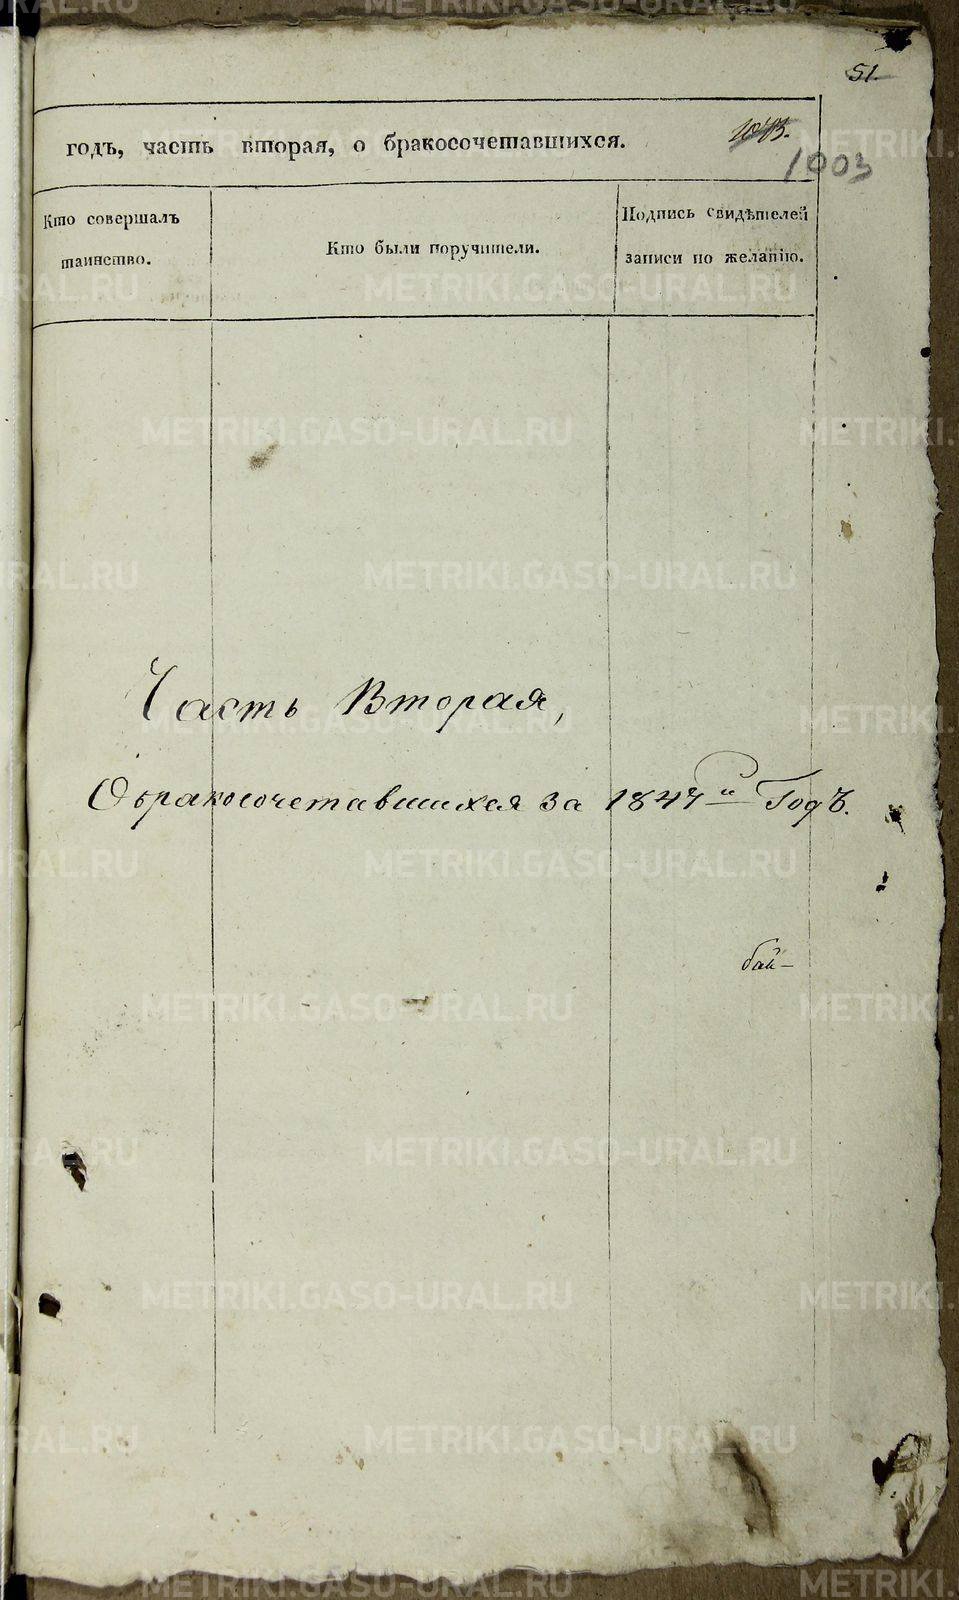 51.
годъ, часть вторая, о бракосочетавшихся.
1003
Кто совершалъ
таинство.
Кто были поручители.
Подпись свидѣтелей
записи по желанію.
Часть Вторая,
О бракосочетавшихся за 1847й Годъ.
бай-
METRIKI.GASO-URAL.RU